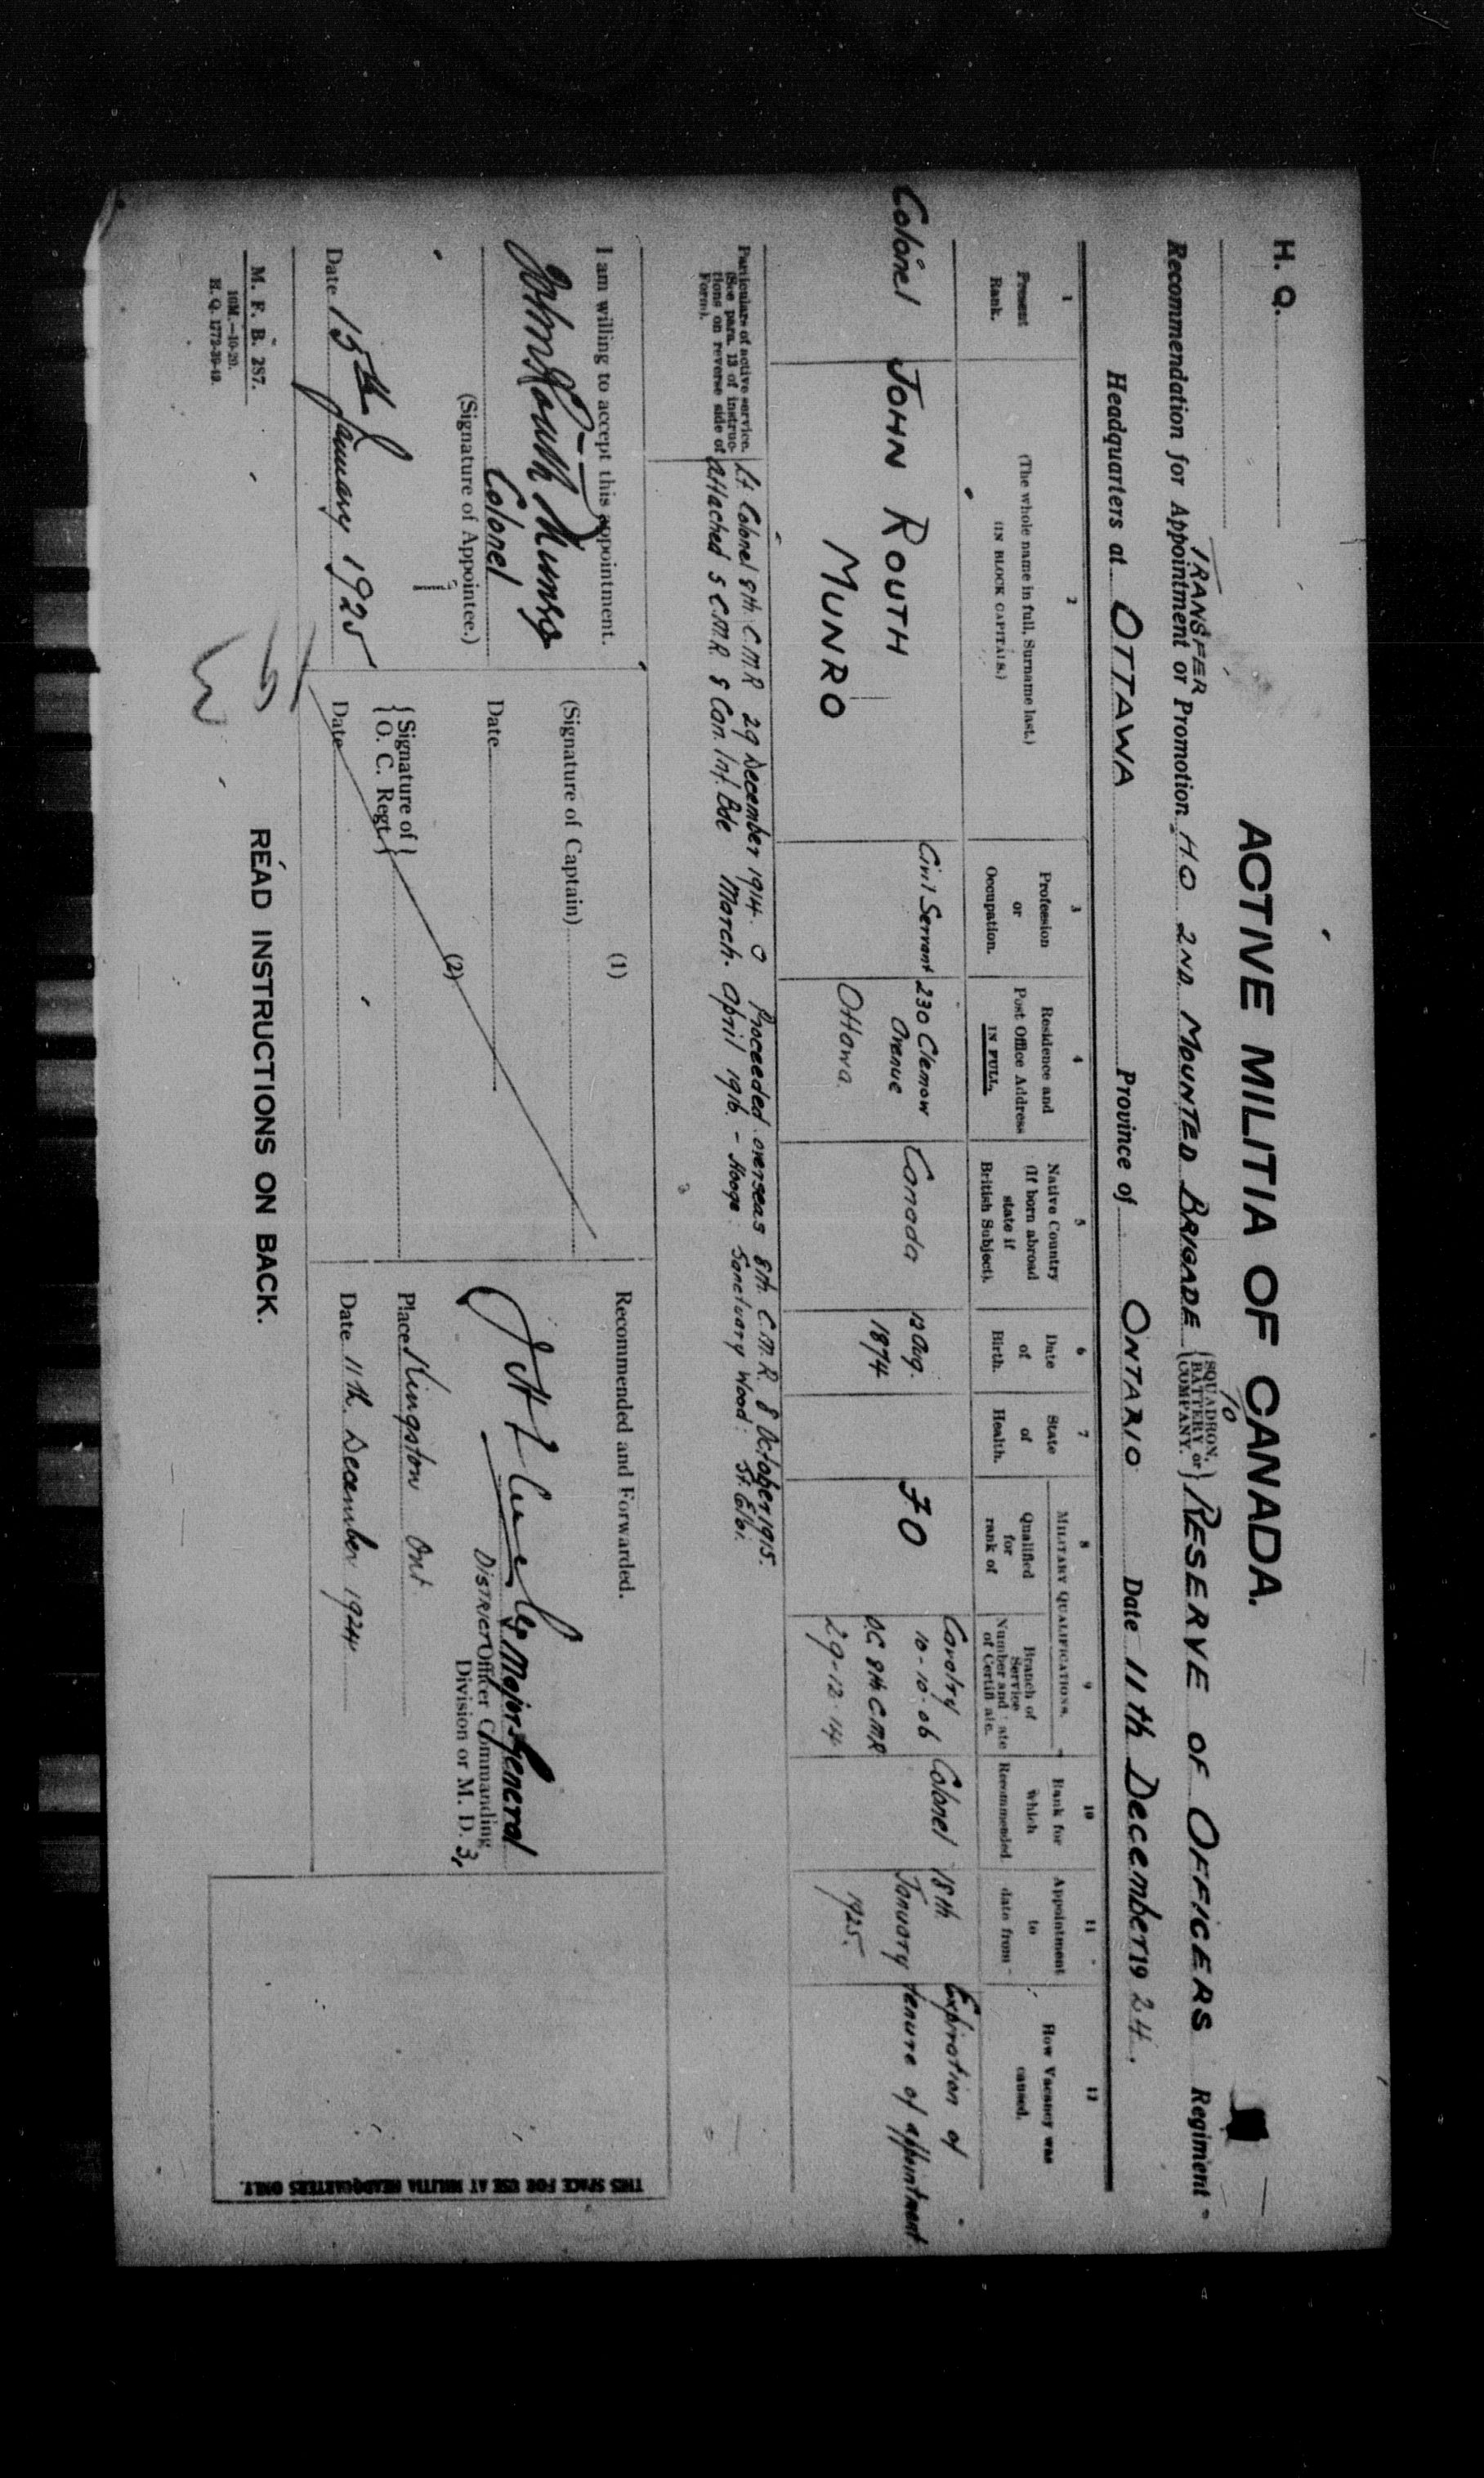 H. Q.
ACTIVE MILITIA OF CANADA.
TRANSFER
TO
Recommendation for Appointment or Promotion HQ 2ND MOUNTED BRIGADE {SQUADRON, BATTERY or COMPANY.} RESERVE OF OFFICERS Regiment
Headquarters at OTTAWA Province of ONTARIO Date 11th December 1924.
1
Present Rank.
2
(The whole name in full, Surname last.)
(IN BLOCK CAPITALS.)
3
Profession or Occupation.
4
Residence and Post Office Address IN FULL.
5
Native Country (If born abroad state if British Subject).
6
Date of Birth.
7
State of Health.
MILITARY QUALIFICATIONS.
8
Qualified for rank of
9
Branch of Service Number and date of Certificate.
10
Rank for which Recommended.
11
Appointment to date from
12
How Vacancy was caused.
Colonel
JOHN ROUTH
MUNRO
Civil Servant
230 Clemow
Avenue
Ottawa
Canada
12 Aug.
1874
FO
Cavalry
10-10-06
O.C 8th C.M.R
29-12-14
Colonel
18th
January
1925.
Expiration of
tenure of appointment
Particulars of active service. (See para. 13 of instructions on reverse side of Form).
Lt Colonel 8th. C.M.R 29 December 1914. Proceeded overseas 8th. C.M.R. 8 October 1915.
attached 5 C.M.R. 8 Can. Inf. Bde March. April 1916. - Hooge: Sanctuary Wood: St. Eloi.
I am willing to accept this appointment.
John Routh Munro
Colonel
(Signature of Appointee.)
Date 15th January 1925
(1)
(Signature of Captain)
Date
(2)
{Signature of O. C. Regt.}
Date
Recommended and Forwarded.
Major General
DISTRICT Officer Commanding
Division or M. D. 3,
Place Kingston Ont
Date 11th. December 1924
THIS SPACE FOR USE AT MILITIA HEADQUARTERS ONLY.
M. F. B. 287.
10M.—10-20.
H. Q. 1772-39-49.
READ INSTRUCTIONS ON BACK.